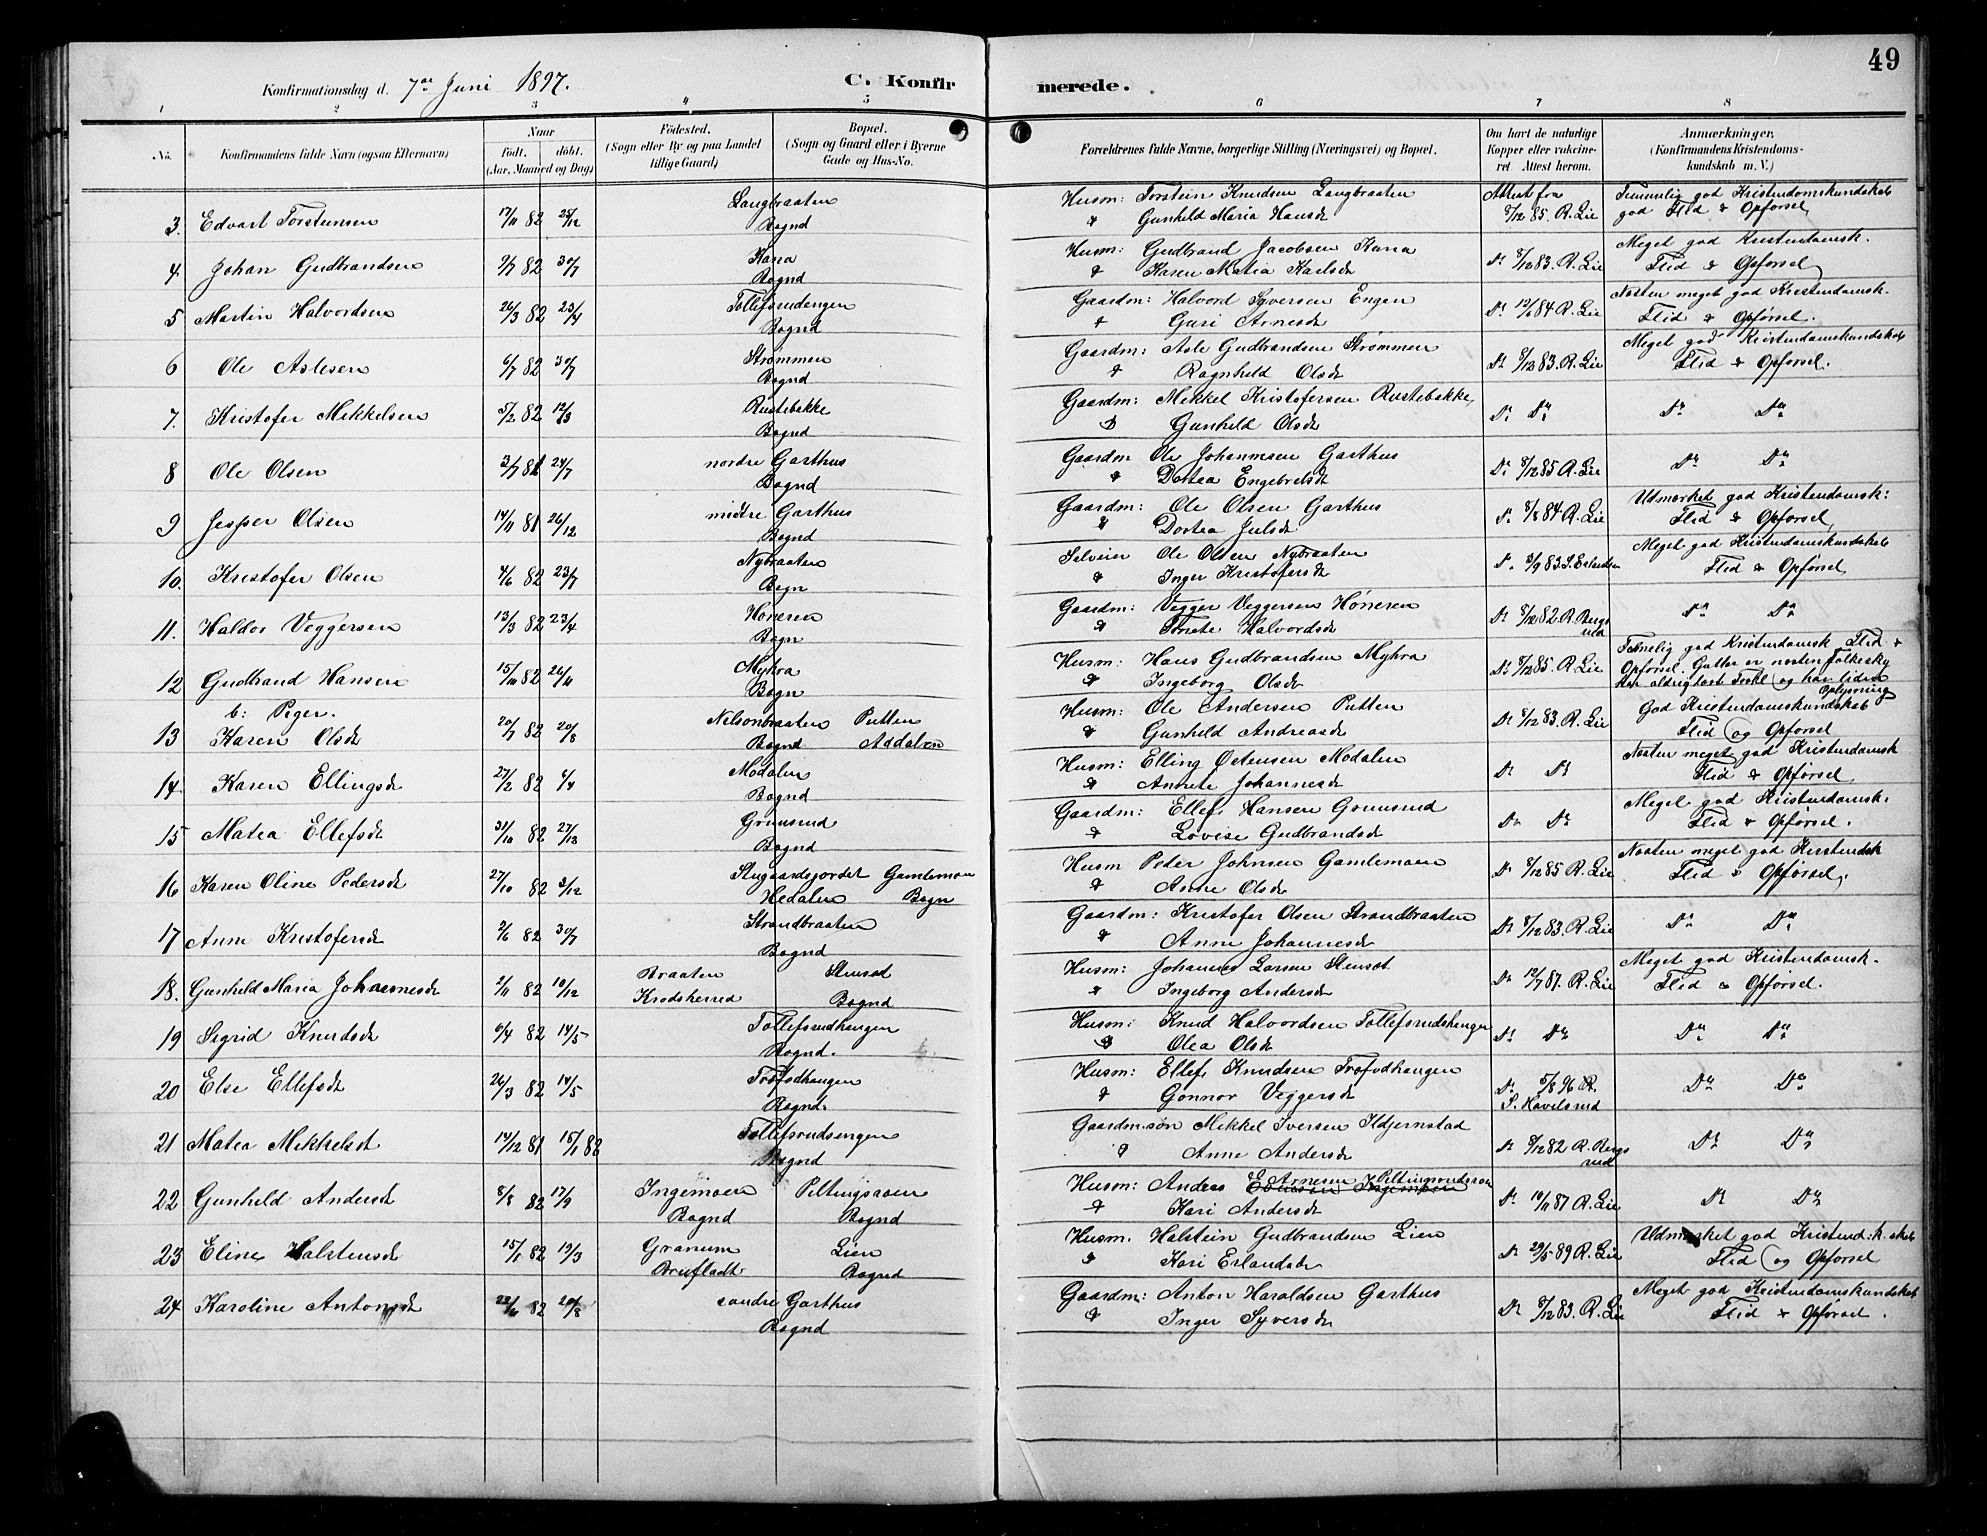 49
Konfirmationsdag d. 7de Juni 1897. C. Konfirmerede.
1 2 3 4 5 6 7 8
No. Konfirmandens fulde Navn (ogsaa Efternavn) Naar født. døbt. (Aar, Maaned og Dag) Födested. (Sogn eller By og paa Landet tillige Gaard) Bopæl. (Sogn og Gaard eller i Byerne Gade og Hus-No. Forældrenes fulde Navne, borgerlige Stilling (Næringsvei) og Bopæl. Om havt de naturlige Kopper eller vakcineret. Attest herom. Anmærkninger. (Konfirmandens Kristendomskundskab m. V.)
Langbraaten Husm: Torstein Knudsen Langbraaten Attest fra Temmelig god Kristendomskundskab
3. Edvart Torstensen 17/11 82 25/12 Bagnd & Gunhild Maria Hansd 8/12 85. R. Lie god Flid & Opførsel
Kana Husm: Gudbrand Jacobsen Kana Meget god Kristendomsk.
4 Johan Gudbrandsen 2/7 82 30/7 Bagnd & Karen Matia Karlsd Do 8/12 83. R. Lie Flid & Opførsel
Tollefsrudengen Gaardm: Halvord Syversen Engen Næsten meget god Kristendomsk.
5 Martin Halvordsen 26/3 82 23/4 Bagnd & Guri Arnesd Do 12/6 84 R. Lie Flid & Opførsel.
Strømmen Gaardm: Asle Gudbrandsen Strømmen Meget god Kristendomskundskab
6 Ole Aslesen 6/7 82 30/7 Bagnd & Ragnhild Olsd Do 8/12 83. R. Lie Flid & Opførsel.
Rustebakke Gaardm: Mikkel Kristofersen Rustebakke,
7. Kristofer Mikkelsen 5/2 82 12/3 Bagnd & Gunhild Olsd Do Do Do Do
nordre Garthus Gaardm Ole Johannsen Garthus
8 Ole Olsen 3/7 81 24/7 Bagnd & Dortea Engebretsd Do 8/12 85 R. Lie Do Do
midtre Garthus Gaardm: Ole Olsen Garthus Udmærket god Kristendomsk:
9 Jesper Olsen 14/11 81 26/12 Bagnd & Dortea Julsd Do 8/8 84 R. Lie Flid & Opførsel,
Nybraaten Selveier Ole Olsen Nybraaten Meget god Kristendomskundskab
10. Kristofer Olsen 4/6 82 23/7 Bagn & Inger Kristofersd Do 3/9 83. S. Erlandsen Flid & Opførsel
Høneren Gaardm: Vegger Veggersen Høneren
11. Haldor Veggersen 13/3 82 23/4 Bagn & Tonete Halvordsd Do 8/12 82 R. Bergsrud Do Do
Myhra Husm: Hans Gudbrandsen Myhra Temelig god Kristendomsk Flid &
12 Gudbrand Hansen 15/10 82 26/11 Bagn & Ingeborg Olsd Do 8/12 85. R. Lie Opførsel. Gutten er næsten folkesky har aldrig læst Forkl og har liden Oplysning
b: Piger. Nelsonbraaten Putten Husm: Ole Andersen Putten God Kristendomskundskab
13 Karen Olsd 20/7 82 20/8 Bagnd Aadalen & Gunhild Andreasd Do 8/12 83. R. Lie Flid og Opførsel
Modalen Husm: Elling Østensen Modalen Næsten meget god Kristendomsk
14 Karen Ellingsd 27/2 82 6/4 Bagnd & Annete Johannesd Do Do Flid & Opførsel
Grimsrud Gaardm: Ellef Hansen Grimsrud Meget god Kristendomsk.
15 Matea Ellefsd 31/10 82 27/12 Bagnd & Lovise Gudbrandsd Do Do Flid & Opførsel.
Stugaardsjordet Gamlemoen Husm Peder Johnsen Gamlemoen Næsten meget god Kristendsk
16 Karen Oline Pedersd 27/10 82 3/12 Hedalen Bagn & Anne Olsd Do 8/12 85 R. Lie Flid & Opførsel.
Strandbraaten Gaardm: Kristofer Olsen Strandbraaten
17 Anne Kristofersd 2/6 82 30/7 Bagnd & Anne Johannesd Do 8/12 83. R. Lie Do Do
Braaten Stenset Husm: Johannes Larsen Stenset Meget god Kristendomsk.
18. Gunhild Maria Johannesd 2/11 82 10/12 Krødsherred Bagnd & Ingeborg Andersd Do 12/7 87. R. Lie Flid & Opførsel.
Tollefsrudhaugen Husm: Knud Halvordsen Tollefsrudshaugen
19 Sigrid Knudsd 6/4 82 14/5 Bagnd. & Olea Olsd Do Do Do Do
Trøfodhaugen Husm: Ellef Knudsen Trøfodhaugen
20 Else Ellefsd 26/3 82 14/5 Bagnd. & Gonnor Veggersd Do 5/8 96 S. Havilsrud Do Do
Tollefsrudsengen Gaardm.søn Mikkel Iversen Ildjernstad
21 Matea Mikkelsd 19/12 81 15/1 82 Bagnd & Anne Andersd Do 8/12 82 R. Bergsrud Do Do
Ingemoen Piltingsrøen Husm: Anders E. Arnesen Piltingsrudsroen
22 Gunhild Andersd 8/8 82 17/9 Bagnd Bagnd & Kari Andersd Do 10/11 87 R. Lie Do Do
Granum Lien Husm. Halstein Gudbrandsen Lien Udmærket god Kristend.k.skab
23 Eline Halstensd 15/1 82 19/3 Brufladt Bagnd & Kari Erlandsd Do 29/5 89 R. Lie Flid og Opførsel
søndre Garthus Gaardm: Anton Haraldsen Garthus Meget god Kristendomskundskab
24 Karoline Antonsd 22/6 82 20/8 Bagnd & Inger Syversd Do 8/12 83. R. Lie Flid & Opførsel.